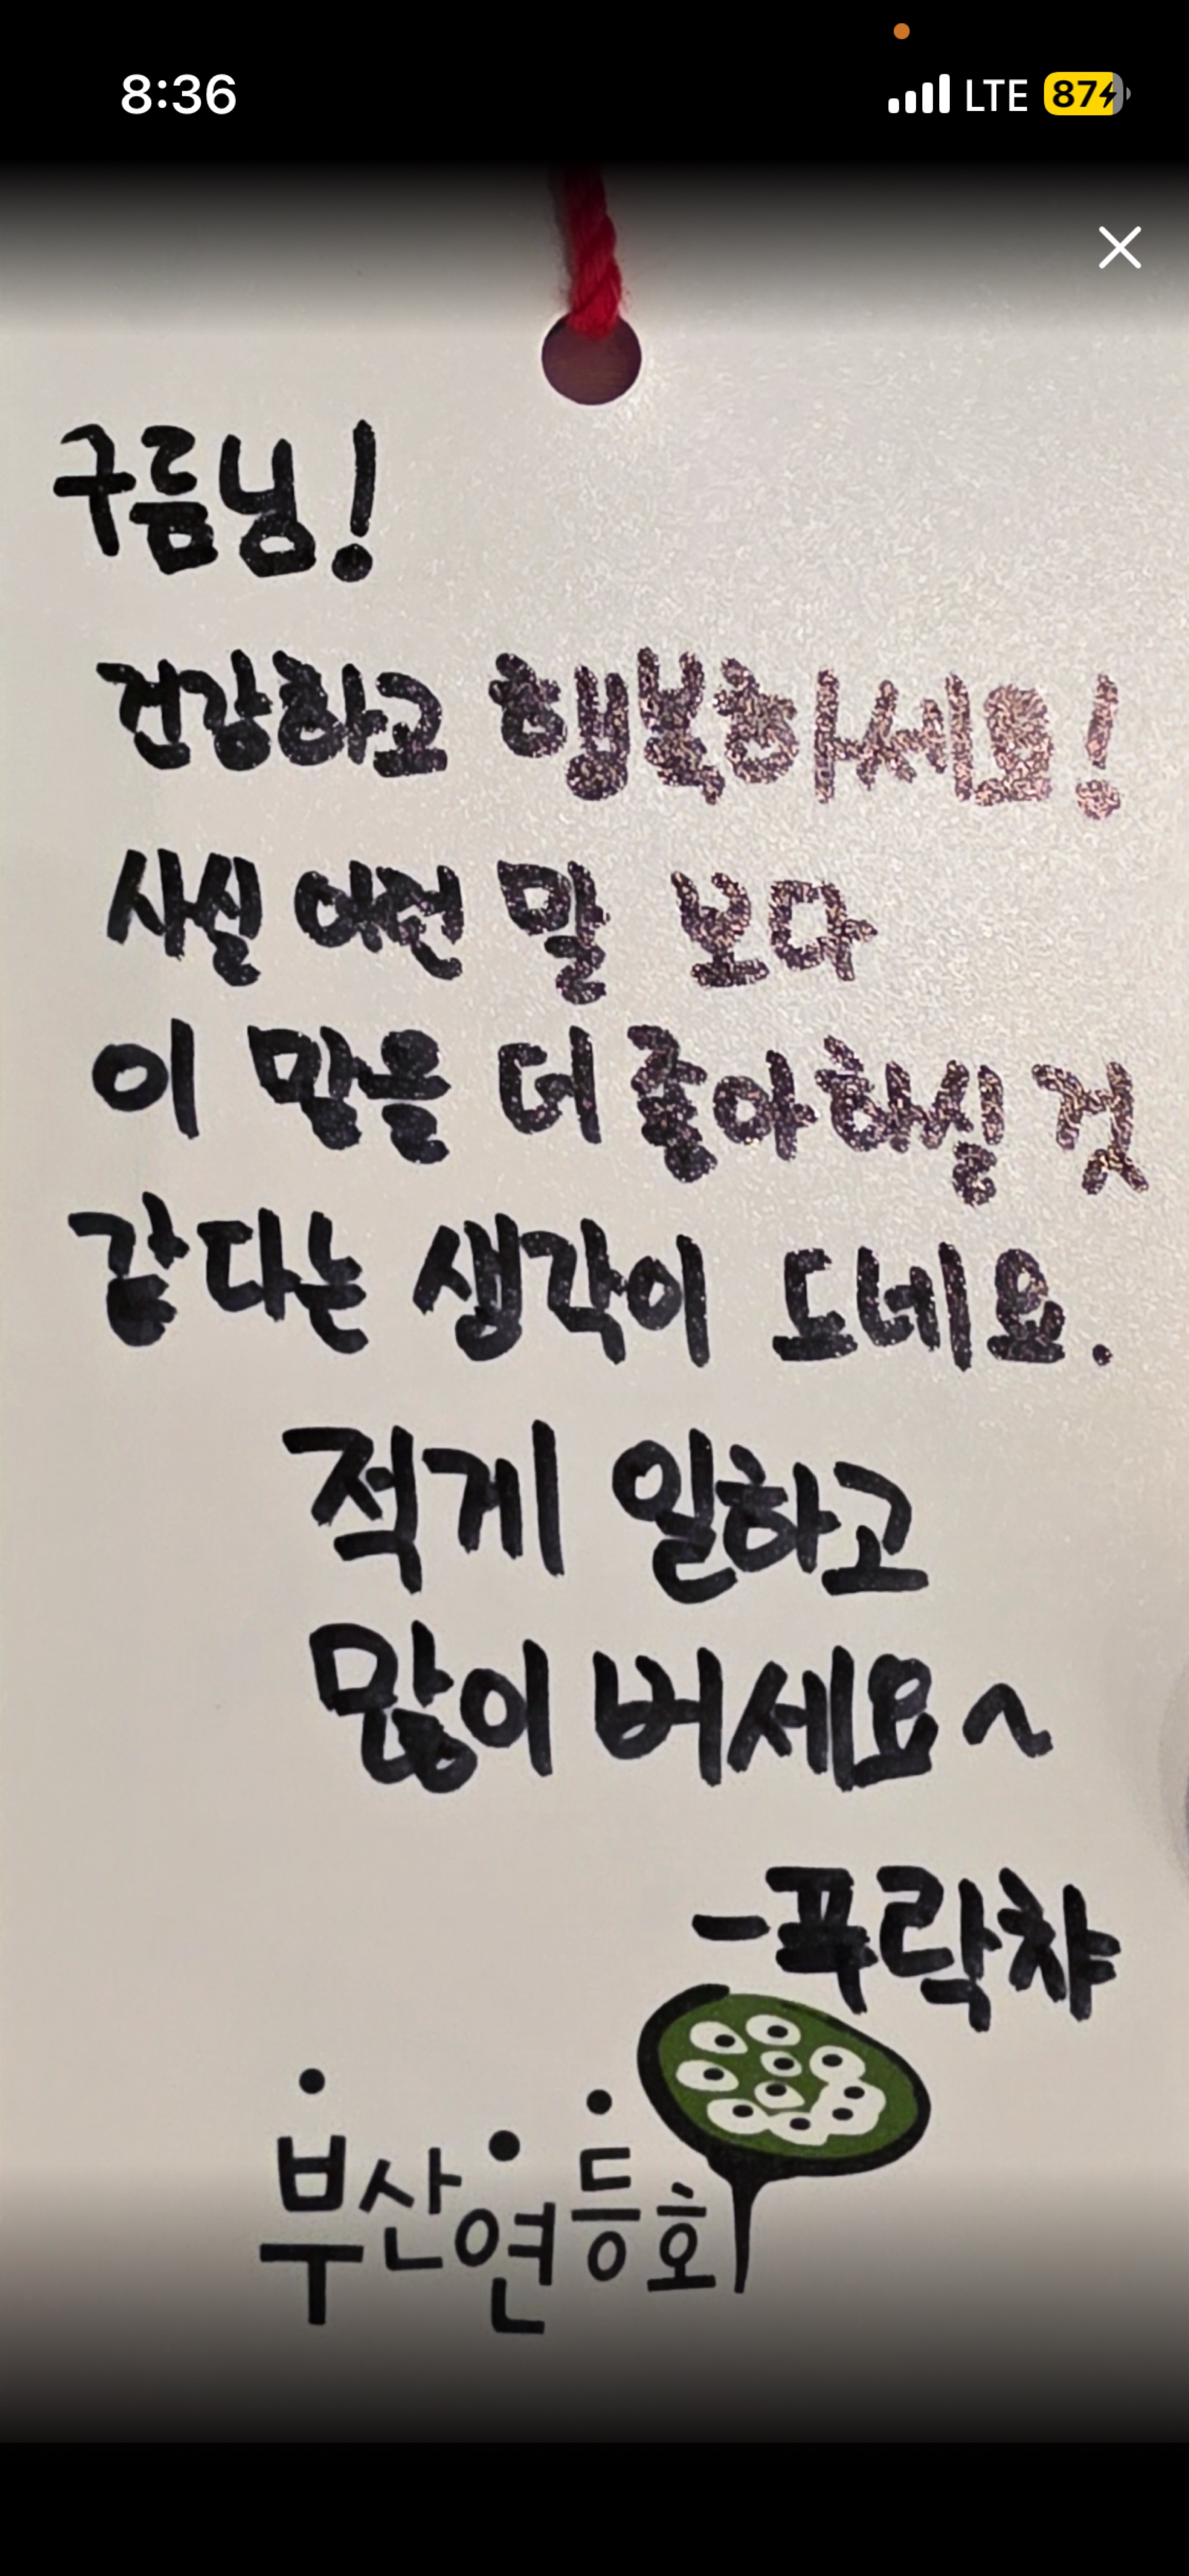 8:36
LTE 87
구름닝!
건강하고 행복하세요!
사실 어떤 말 보다
이 말을 더 좋아하실 것
같다는 생각이 도네요.
적게 일하고
많이 버세요~
-푸락챠
부산연등회